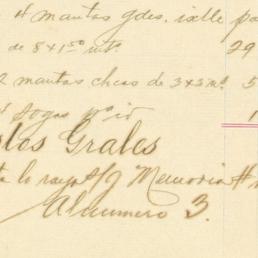 4 mantas gdes. ixtle pa
de 8 x 1 50 mts. 29
2 mantas chcas de 3 x 3 m. 5
4 sogas
los Grales
ta lo raya S/g Memoria #
Al número 3.